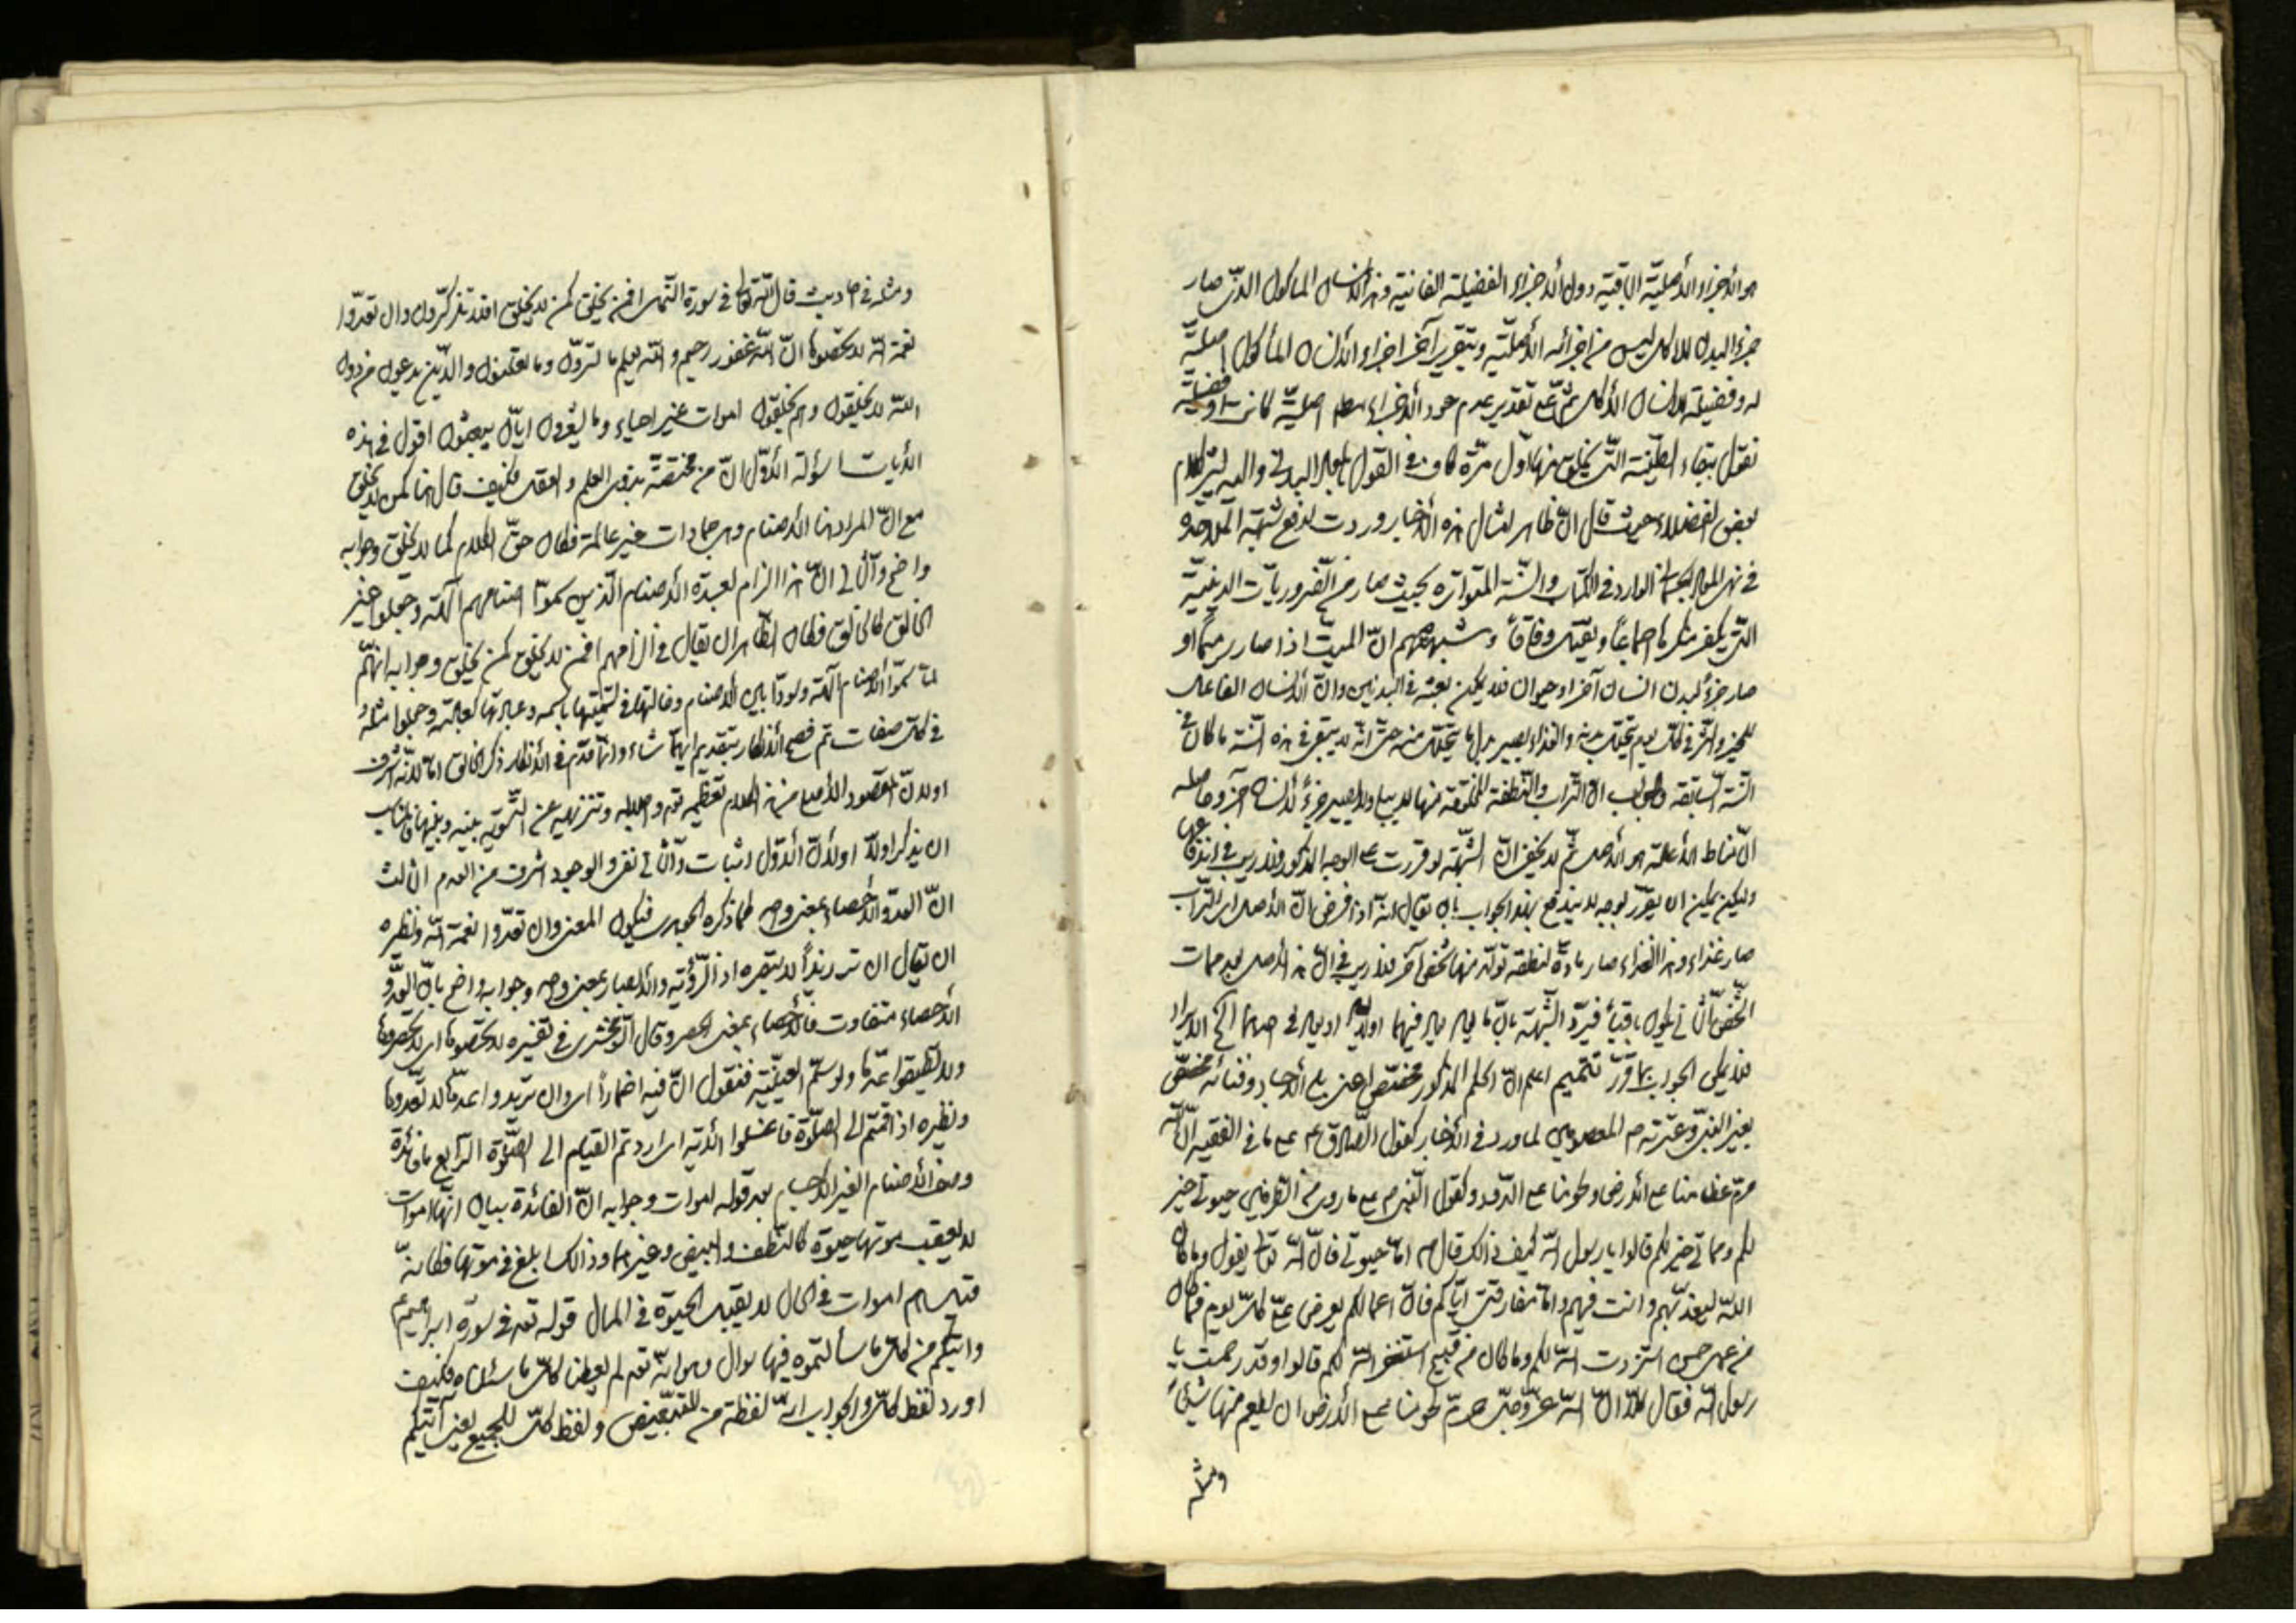 هو الأجزاء الأصلية الباقية دون الأجزاء الفضيلة الفانية وهذا الإنسان المأكول الذي صار
جزء البدن الآكل ليس من اجزائه الأصلية وبتقرير آخر اجزاء الإنسان المأكول اصلية
له وفضيلة للإنسان الآكل ثم على تقدير عدم عود الأجزاء اصلية كانت او فضلية
نقول بقاء الطينة التي يخلق منها اول مرة كاف في القول بالمعاد البدني واليه يشير كلام
بعض الفضلاء حيث قال ان ظاهر امثال هذه الأخبار وردت لدفع شبهة الملاحدة
في نفي المعاد الجسماني الوارد في الكتاب والسنة المتواترة بحيث صار من الضروريات الدينية
التي يكفر منكرها اجماعاً ويقتل وفاقاً وشبهتهم ان الميت اذا صار رميماً او
صار جزءً لبدن انسان آخر او حيوان فلا يمكن بعثه في البدنين وان الإنسان الفاعل
للخير والشر في كل يوم يتحلل بدنه والغذاء يصير بدل ما يتحلل منه حتى انه لا يبقى في هذه السنة ما كان في
السنة السابقة والجواب ان التراب والنطفة المخلوقة منها لا يبلى ولا يصير جزءً لإنسان آخر وحاصله
ان مناط الإعادة هو الأصل ثم لا يخفى ان الشبهة لو قررت على الوجه المذكور فلا ريب في اندفاعها
ولكن يمكن ان يقرر بوجه لا يندفع بهذا الجواب بان يقال انه اذا فرض ان الأصل اى التراب
صار غذاء وهذا الغذاء صار مادة لنطفة تولد منها شخص آخر فلا ريب في ان هذا الأصل بعد ممات
الشخص الثاني يكون باقياً فيرد الشبهة بان يعاد فيهما اولا او يعاد في احدهما الى آخر الإيراد
فلا يمكن الجواب بما قرر تتميم اعلم ان الحكم المذكور مختص اعني بلى الأجساد وفنائه مختص
بغير النبي وعترته المعصومين لما ورد في الأخبار كقول الصادق ع على ما في الفقيه ان الله
حرم عظامنا على الأرض ولحومنا على الدود وكقول النبي ص على ما روى من الطرفين حيوتي خير
لكم ومماتي خير لكم قالوا يا رسول الله كيف ذلك قال ص اما حيوتي فان الله تعالى يقول وما كان
الله ليعذبهم وانت فيهم واما مفارقتي اياكم فان اعمالكم يعرض على كل يوم فما كان
من عمل حسن استزدت الله لكم وما كان من قبيح استغفر الله لكم قالوا وقد رممت يا
رسول الله فقال كلا ان الله عز وجل حرم لحومنا على الأرض ان يطعم منها شيئاً
ومثله
ومثله في احاديث قال الله تعالى في سورة النحل افمن يخلق كمن لا يخلق افلا تذكرون وان تعدوا
نعمة الله لا تحصوها ان الله لغفور رحيم والله يعلم ما تسرون وما تعلنون والذين يدعون من دون
الله لا يخلقون وهم يخلقون اموات غير احياء وما يشعرون ايان يبعثون اقول في هذه
الآيات اسؤلة الأول ان من مختصة بذوى العلم والعقل فكيف قال هنا كمن لا يخلق
مع ان المراد هنا الأصنام وهى جمادات غير عالمة فكان حق الكلام كما لا يخلق وجوابه
واضح والثاني ان هذا الزام لعبدة الأصنام الذين سموا اصنامهم آلهة وجعلوا غير
الخالق كالخالق فكان الظاهر ان يقال في الزامهم افمن لا يخلق كمن يخلق وجوابه انهم
لما سموا الأصنام آلهة وسووا بين الأصنام وخالقها في تسميتها باسمه وعبادتها كعبادته وجعلوا مثله و
في كل صفات تم فصح الإنكار بتقديم ايهما شاء وانما قدم في الإنكار ذكر الخالق اما لانه اشرف
او لان المقصود الأهم من هذا الكلام تعظيمه تعالى واجلاله وتنزيهه عن التسوية بينه وبينها فناسب
ان يذكر اولا او لأن الأول اثبات والثاني نفى والوجود اشرف من العدم الثالث
ان العد والإحصاء بمعنى واحد كما ذكره الجوهرى فيكون المعنى وان تعدوا نعمة الله ونظيره
ان يقال ان تر زيداً لا تبصره اذ الرؤية والإبصار بمعنى واحد وجوابه واضح بان العد و
الإحصاء متفاوت فالإحصاء بمعنى الحصر وقال الزمخشرى في تفسيره لا تحصوها اى لا تحصروها
ولا تطيقوا عدها ولو سلم العينية فنقول ان فيه اضماراً اى وان تريدوا عدها لا تعدوها
ونظيره اذا قمتم الى الصلوة فاغسلوا الآية اى اردتم القيام الى الصلوة الرابع ما فائدة
وصف الأصنام الغير الأحياء بعد قوله اموات وجوابه ان الفائدة بيان انها اموات
لا يعقب موتها حيوة كالنطف والبيض وغيرهما وذلك ابلغ في موتها فكانه
قال هم اموات في الحال لا يعقب الحيوة في المآل قوله تعالى في سورة ابراهيم ع
وآتيكم من كل ما سألتموه فيها سؤال وهو انه تعالى لم يعطنا كل ما سئلناه فكيف
اورد لفظ كل والجواب انه لفظة من للتبعيض ولفظ كل للجميع يعنى آتيكم